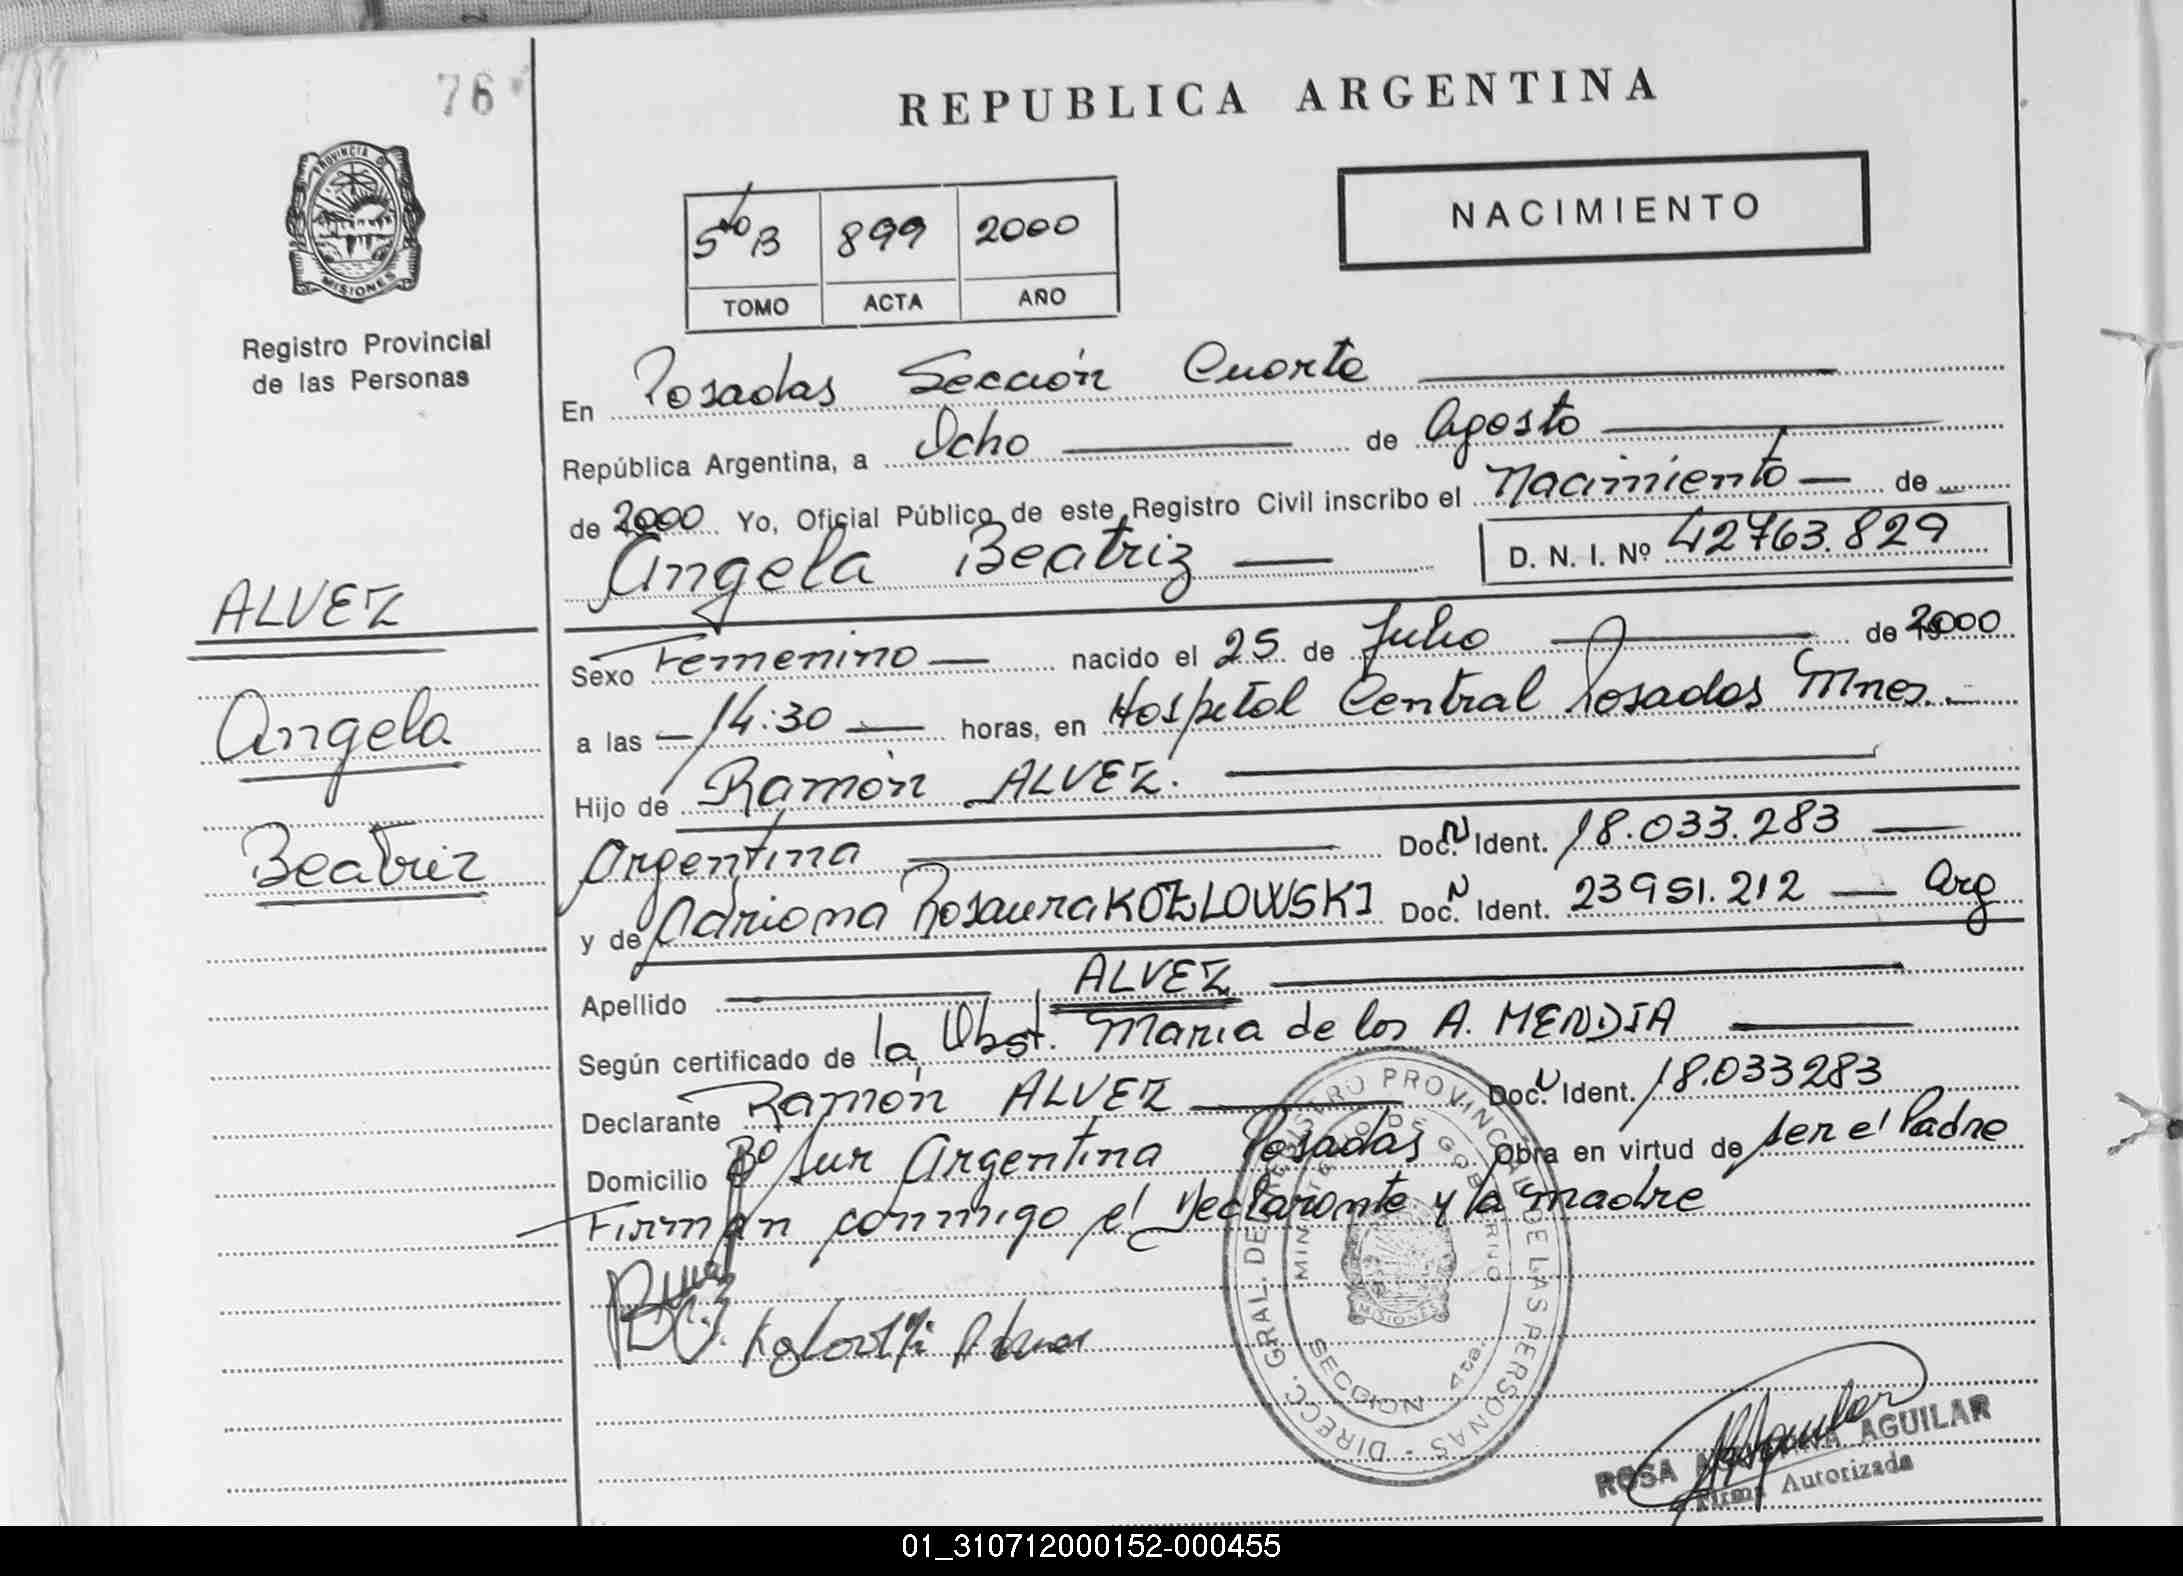 76
REPUBLICA ARGENTINA
PROVINCIA DE
MISIONES
NACIMIENTO
5to B 899 2000
TOMO ACTA AÑO
Registro Provincial
de las Personas
En Posadas Sección Cuarta
República Argentina, a Ocho de Agosto
de 2000 Yo, Oficial Público de este Registro Civil inscribo el Nacimiento de
Angela Beatriz D. N. I. Nº 42763.829
ALVEZ
Angela
Beatriz
Sexo Femenino nacido el 25 de Julio de 2000
a las 14:30 horas, en Hospital Central Posadas Mnes.
Hijo de Ramón ALVEZ.
Argentina Doc. N Ident. 18.033.283
y de Adriana Rosaura KOZLOWSKI Doc. N Ident. 23951.212 Arg
Apellido ALVEZ
Según certificado de la Obst. Maria de los A. MENDIA
Declarante Ramón ALVEZ Doc. N Ident. 18.033283
Domicilio Bº Sur Argentina Posadas Obra en virtud de ser el Padre
Firman conmigo el Declarante y la madre
DIRECC. GRAL. DEL REGISTRO PROVINCIAL DE LAS PERSONAS
MINISTERIO DE GOBIERNO
MISIONES
SECCION 4ta.
ROSA AGUILAR
Firma Autorizada
01_310712000152-000455